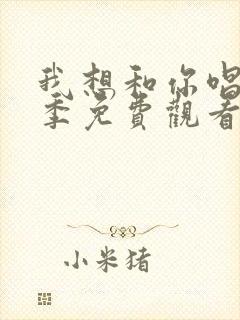 我想和你唱
季免費觀看
小米猪